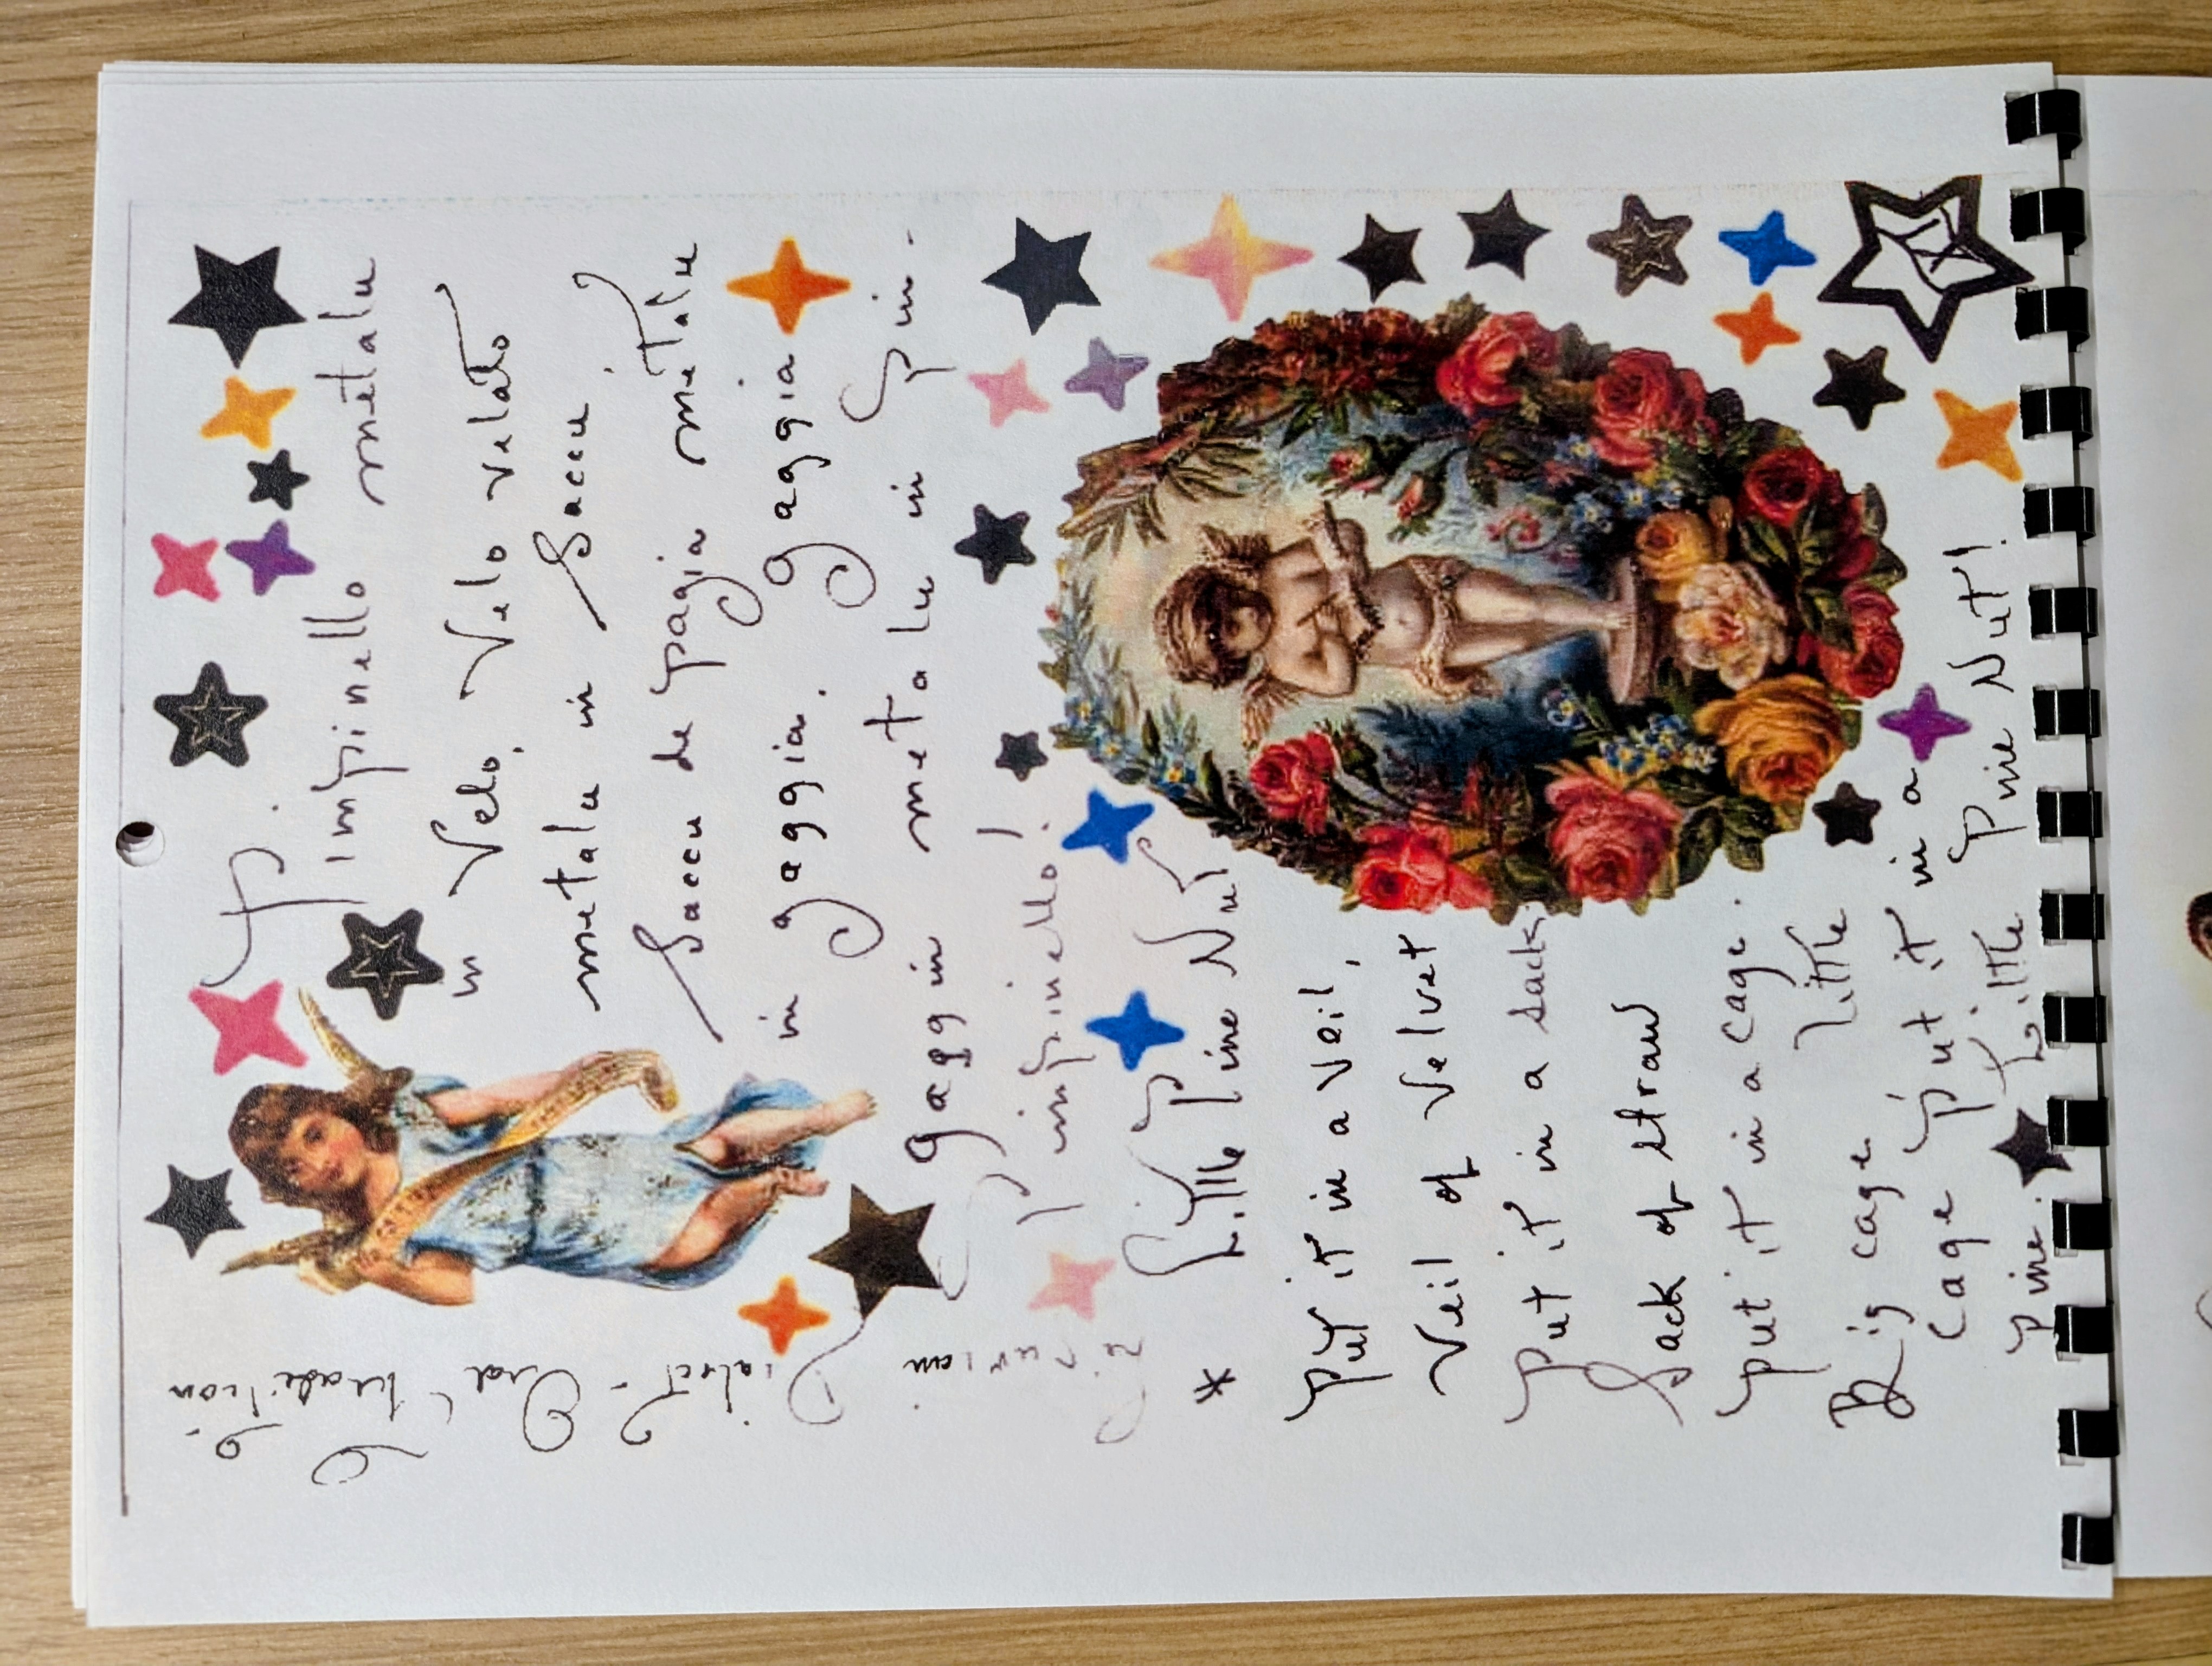 P.
impinello metalu
in Velo, Velo velato
metalu in Saccu,
Saccu de pagia metalu
in gaggia. gaggia
gaggin metalu in pin-
pinpinello!
Little Pine Nut
*
put it in a veil,
Veil of Velvet
put it in a sack.
Sack of straw
put it in a cage.
Big cage little
Cage put it in a
pine. Little Pine Nut!
Ligurian
in
Dialect - Oral tradition